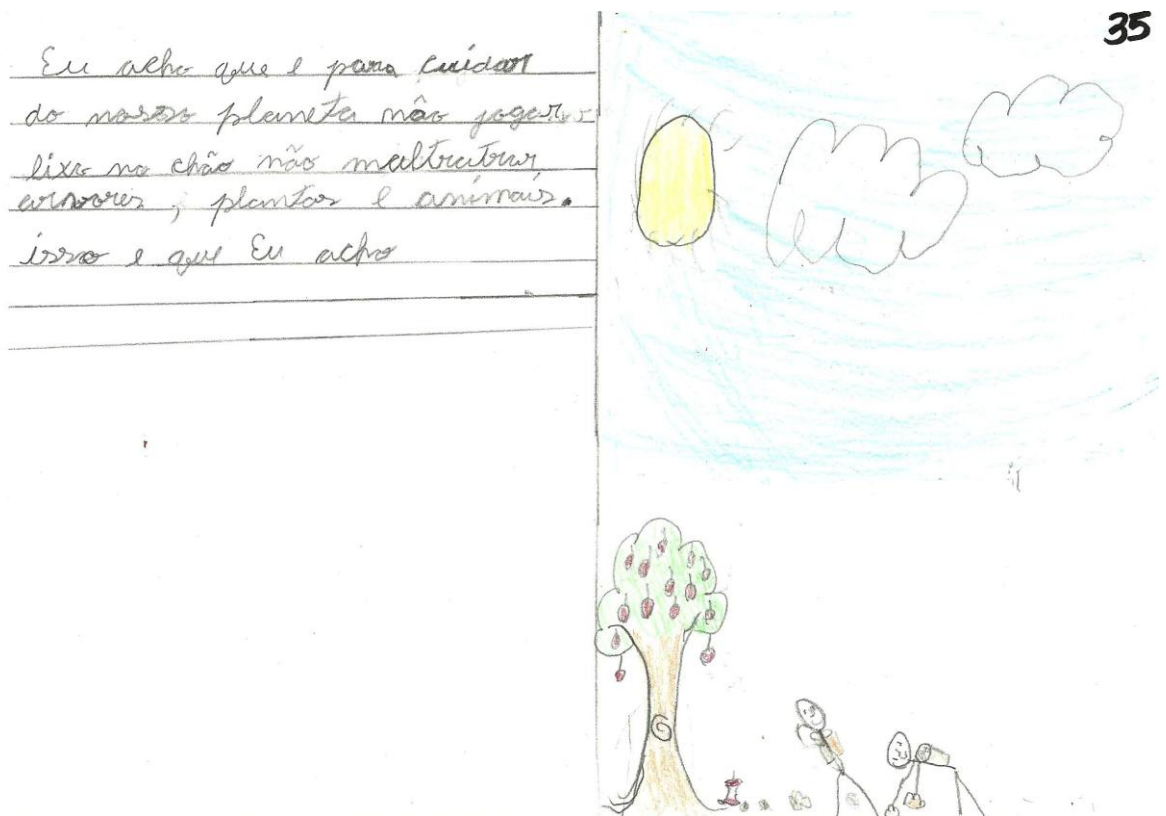 35
Eu acho que e para cuidar
do nosso planeta não jogar
lixo no chão não maltratar
arvores, plantas e animais.
isso e que Eu acho